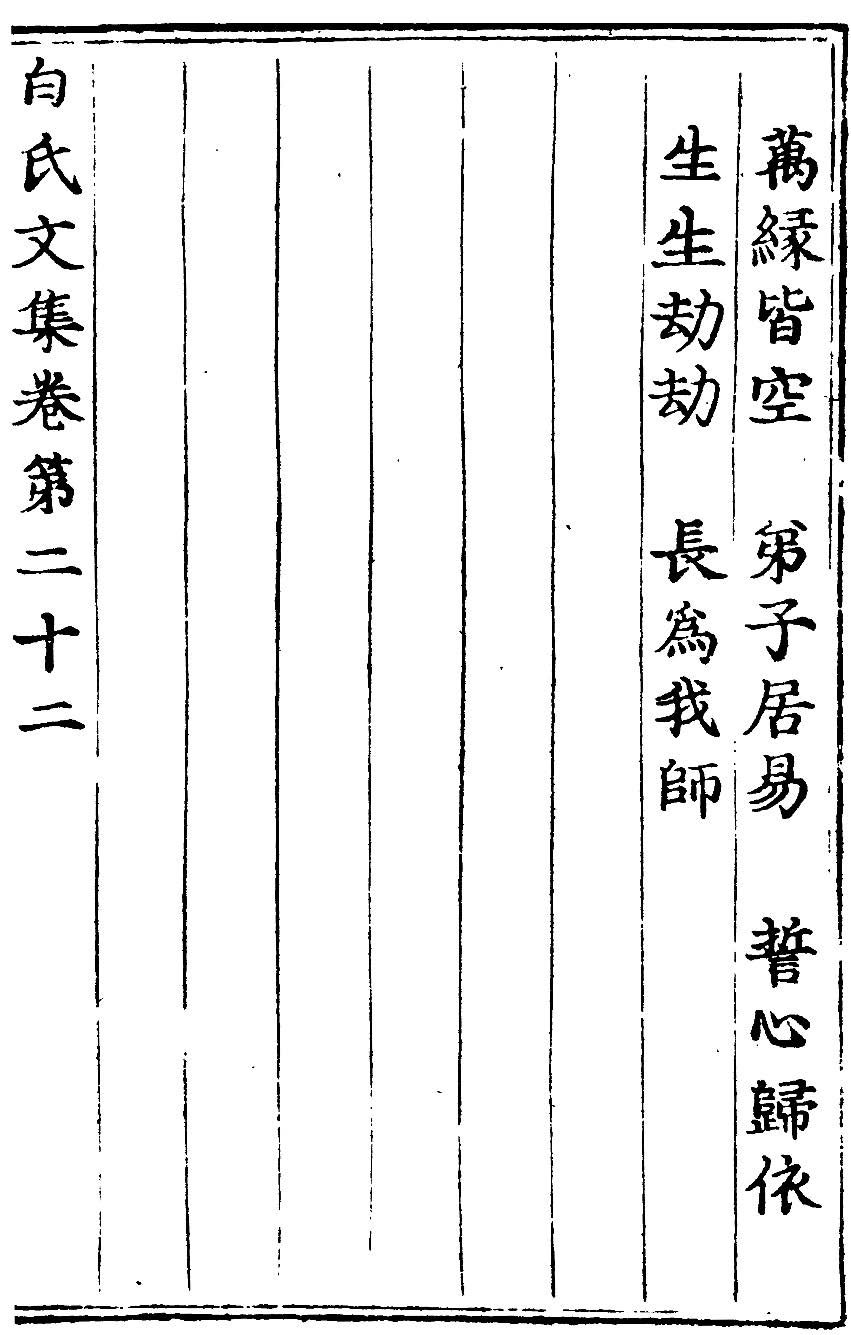 萬縁皆空　弟子居易　誓心歸依
生生劫劫　長爲我師
白氏文集卷第二十二